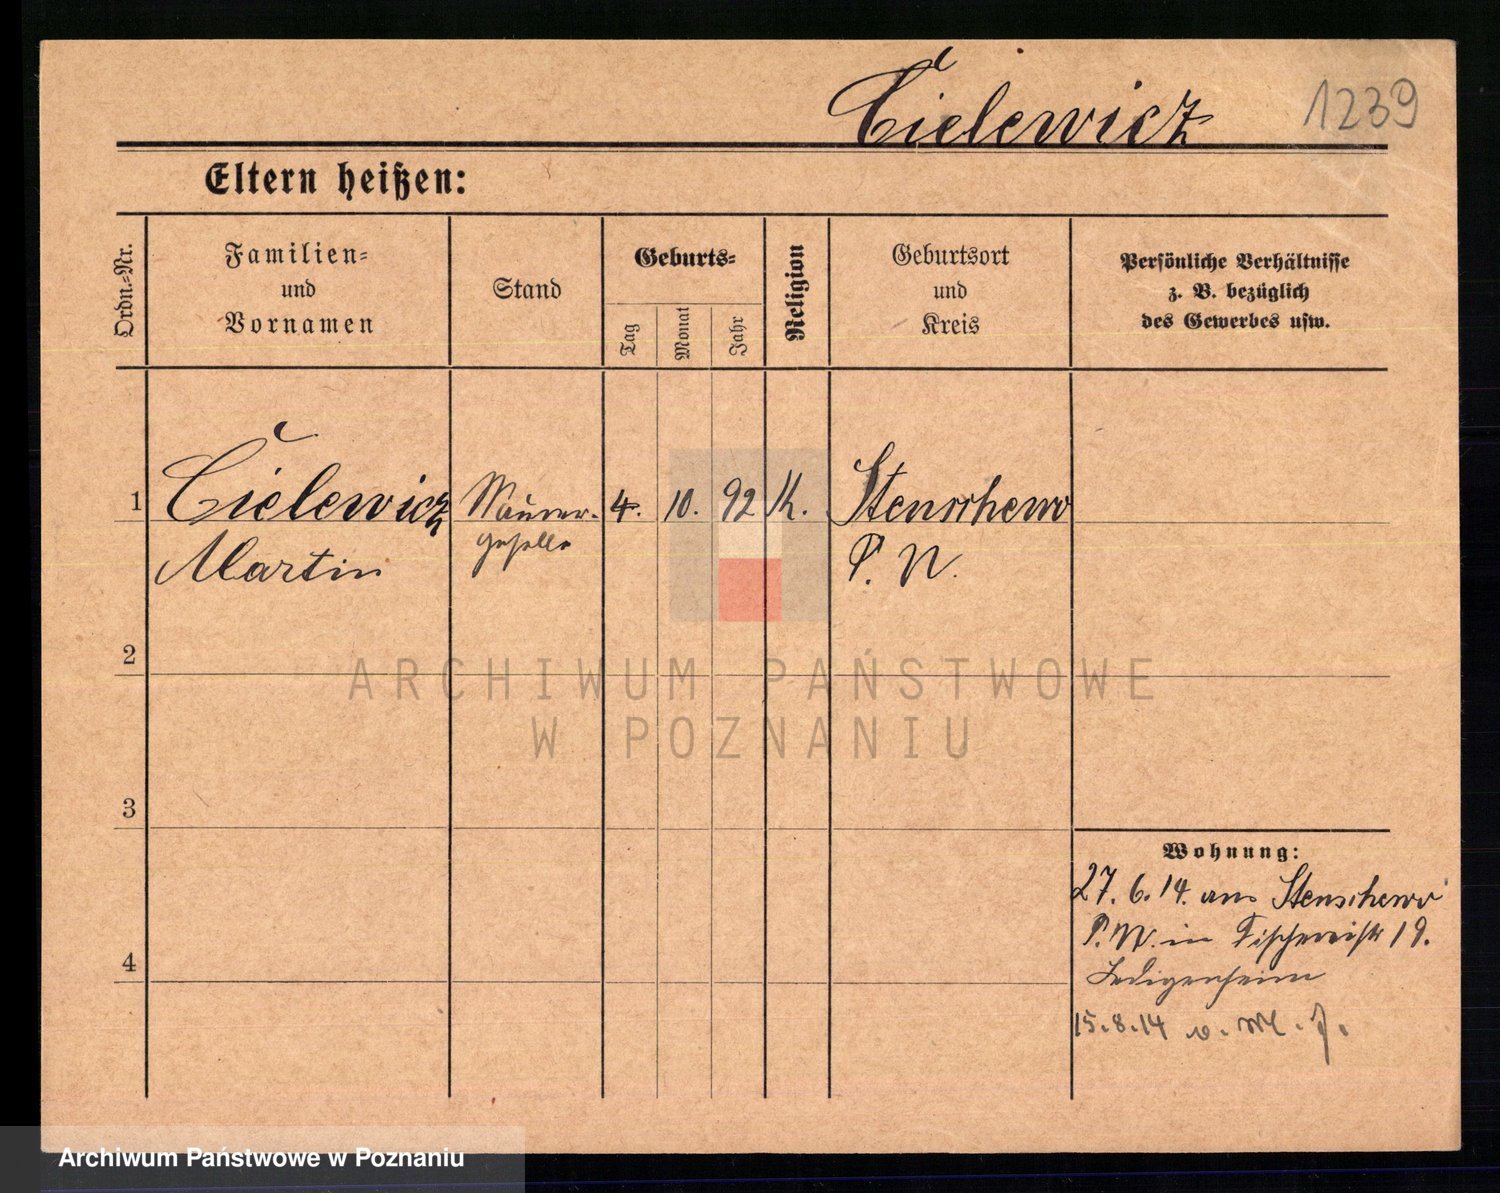 Cielewicz 1239
Eltern heißen:
Ordn.-Nr.
Familien- und Vornamen
Stand
Geburts-
Tag
Monat
Jahr
Religion
Geburtsort und Kreis
Persönliche Verhältnisse
z. B. bezüglich
des Gewerbes usw.
1 Cielewicz Maurer- 4. 10. 92 K. Stenschewo
Martin geselle P. W.
2
ARCHIWUM PAŃSTWOWE
W POZNANIU
3
Wohnung:
27. 6. 14. aus Stenschewo
P. W. in Fischereistr 19.
4
Ledigenheim
15.8.14 v. M. J.
Archiwum Państwowe w Poznaniu